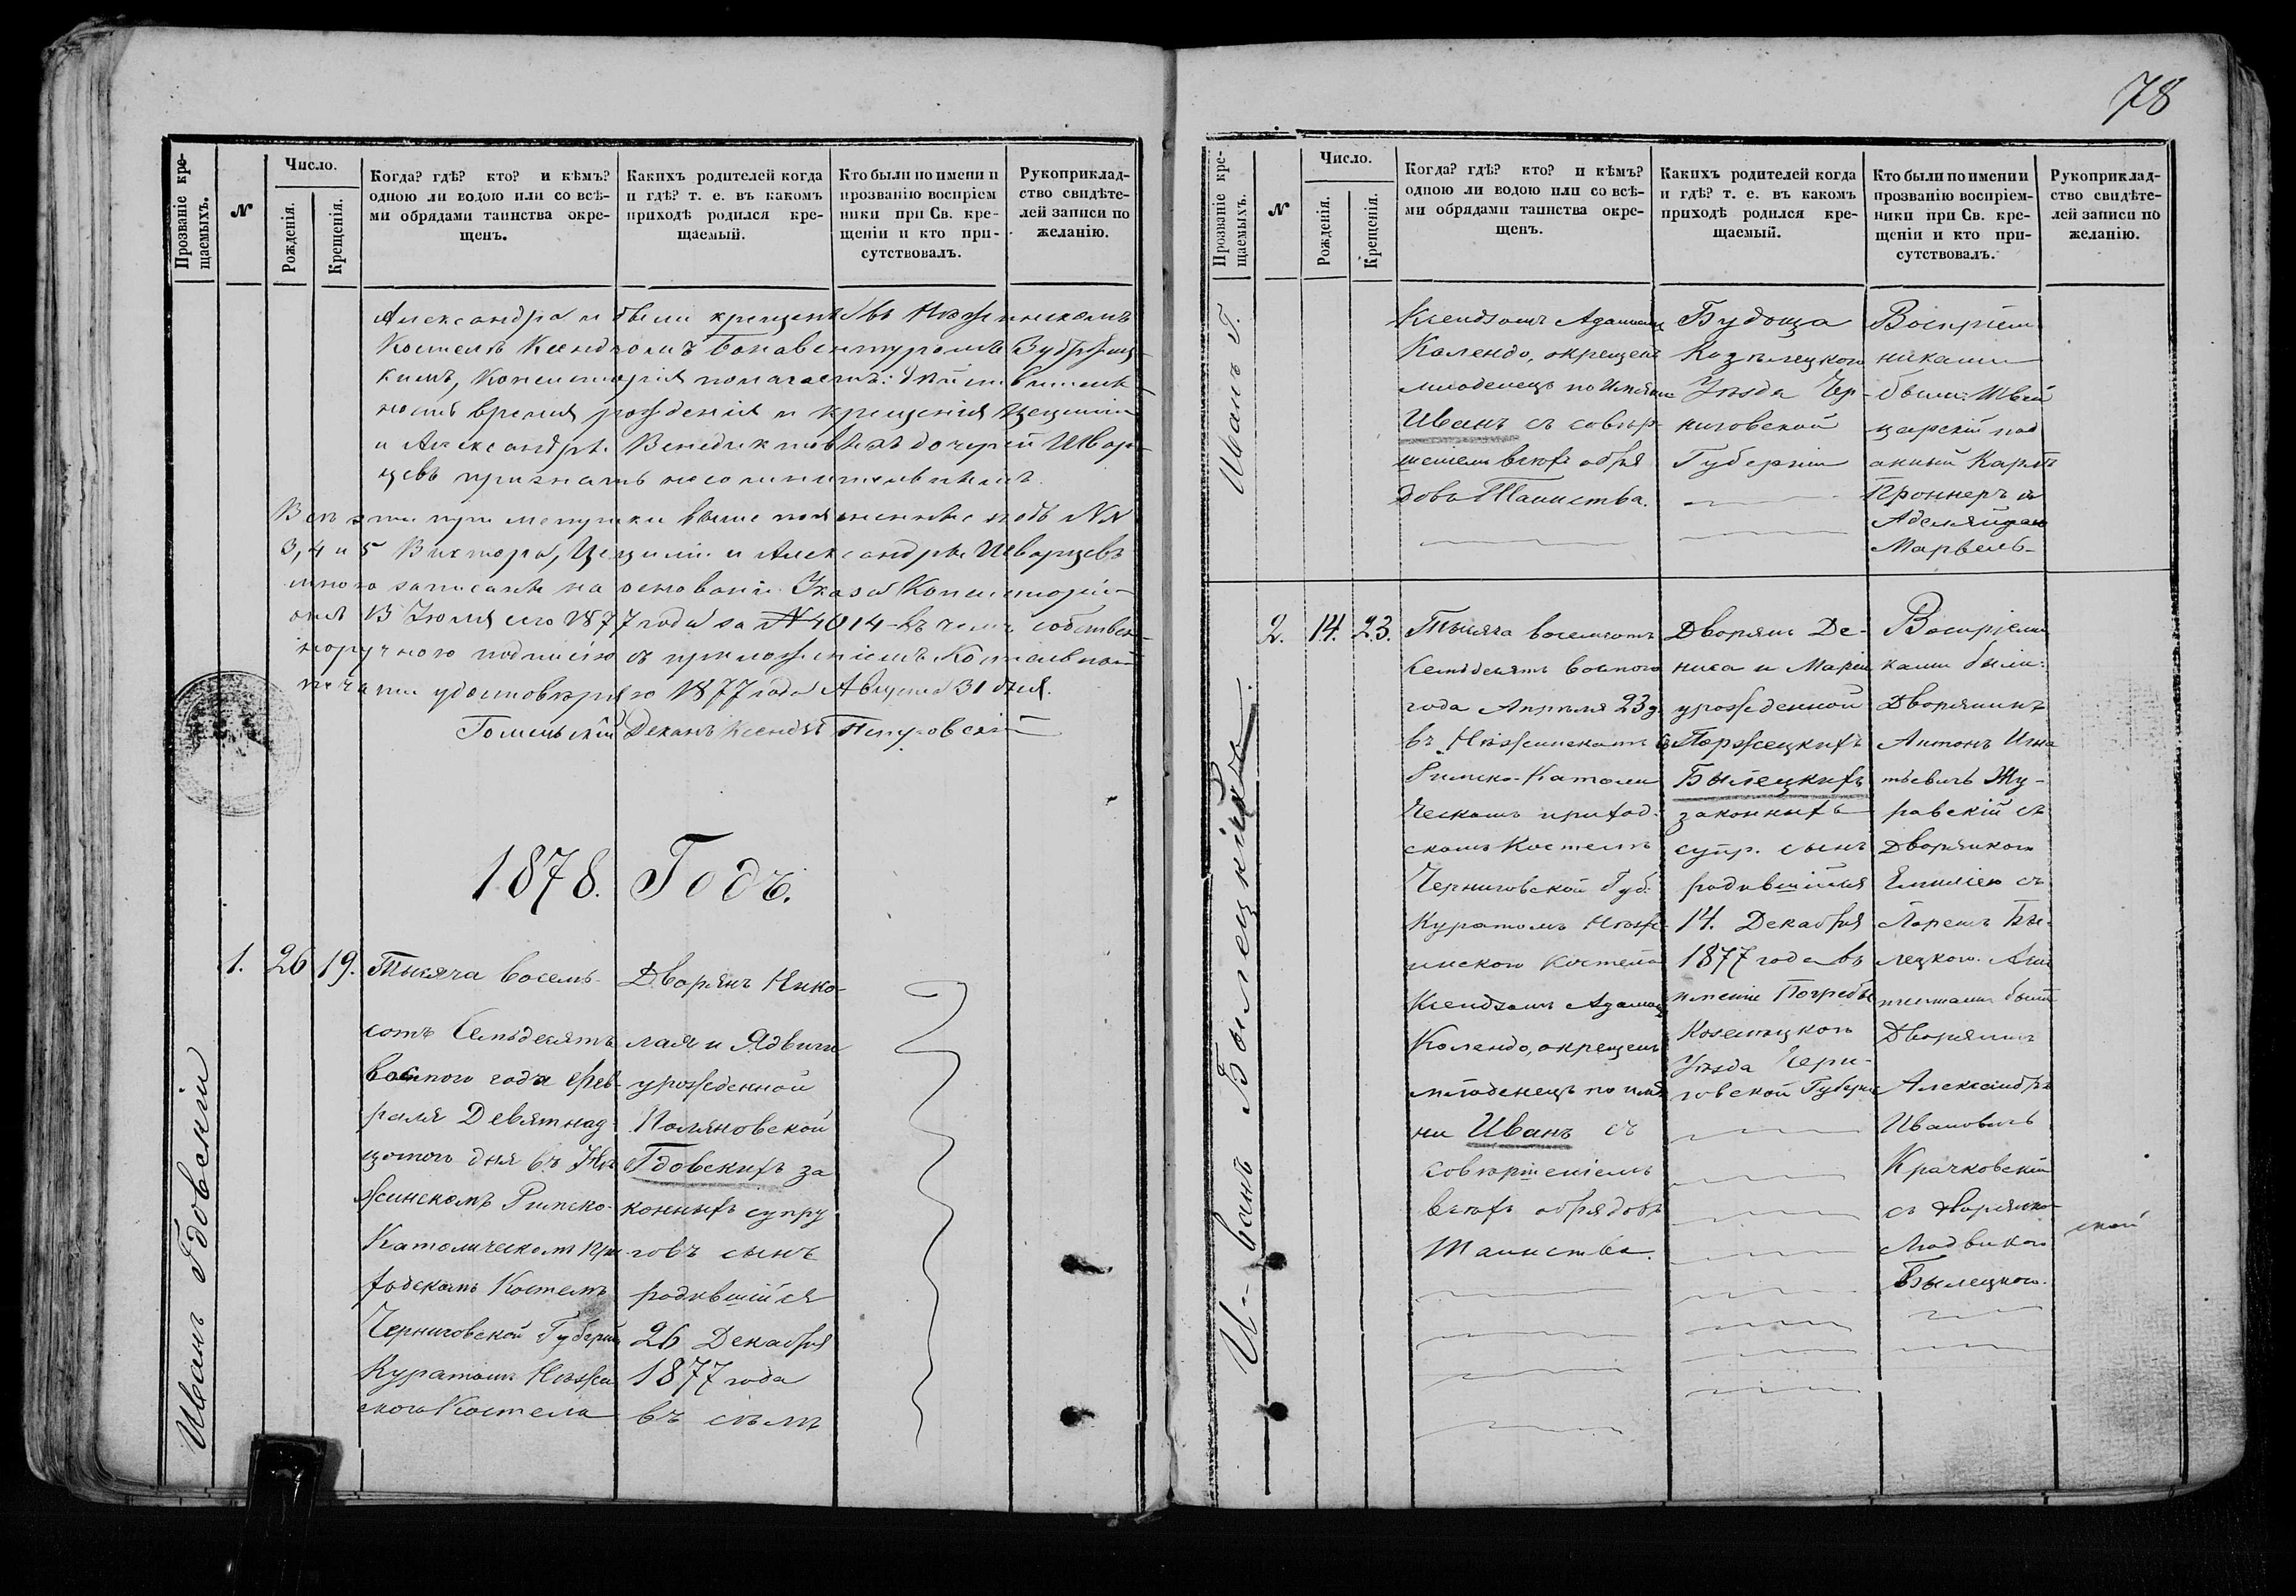 78
Прозваніе кре-
щаемыхъ.
№
Число.
Рожденія.
Крещенія.
Когда? гдѣ? кто? и кѣмъ?
одною ли водою или со всѣ-
ми обрядами таинства окре-
щенъ.
Какихъ родителей когда
и гдѣ? т. е. въ какомъ
приходѣ родился кре-
щаемый.
Кто были по имени и
прозванію воспріем
ники при Св. кре-
щеніи и кто при-
сутствовалъ.
Рукоприклад-
ство свидѣте-
лей записи по
желанію.
Александра и были крещены въ Нѣжинскомъ
Костелѣ Ксендзомъ Бонавентуромъ
кимъ, Консисторія полагаетъ: дѣйствитель-
ность время рожденія и крещенія Цециліи
и Александры Венедиктовыхъ дочерей Швар-
цевъ признать несомнительнымъ.
Всѣ эти при метрики выше поясненные подъ №№
3, 4 и 5 Виктора, Цециліи и Александры Шварцевъ
мною записаны на основаніи Указа Консисторіи
отъ 13 Іюля сего 1877 года за № 4014 - въ чемъ собствен-
норучною подписью съ приложеніемъ Костельной
печати удостовѣряю 1877 года Августа 31 дня.
Гомельскій Деканъ Ксендзъ
1878. Годъ.
Иванъ Гдовскій
1.
26
19.
Тысяча восемь-
сотъ Семьдесятъ
восьмого года Фев-
раля Девятнад-
цатого дня въ Нѣ-
жинскомъ Римско-
Католическомъ При-
ходскомъ Костелѣ
Черниговской Губерніи
Куратомъ Нѣжин
скаго Костела
Дворянъ Нико-
лая и Ядвиги
урожденной
Поляновской
Гдовскихъ за
конныхъ супру
говъ сынъ
родившійся
26 Декабря
1877 года
въ селѣ
Прозваніе кре-
щаемыхъ.
№
Число.
Рожденія.
Крещенія.
Когда? гдѣ? кто? и кѣмъ?
одною ли водою или со всѣ-
ми обрядами таинства окре-
щенъ.
Какихъ родителей когда
и гдѣ? т. е. въ какомъ
приходѣ родился кре-
щаемый.
Кто были по имени и
прозванію воспріем-
ники при Св. кре-
щеніи и кто при-
сутствовалъ.
Рукоприклад-
ство свидѣте-
лей записи по
желанію.
Иванъ Г.
Ксендзомъ Адамомъ
Календо, окрещенъ
младенецъ по Имени
Иванъ съ совер-
шеніемъ всѣхъ обря
довъ Таинства.
Будоща
Козѣлецкого
Уѣзда Чер-
ниговской
Губерніи
Воспріем
никами
были: Швей
царскій под
анный Карлъ
Проннеръ и
Аделяйдою
Марвель-
И-ванъ Былецкій
2.
14.
23.
Тысяча восемсотъ
Семьдесятъ восмого
года Апрѣля 23 д.
въ Нѣжинскомъ
Римско-Католи
ческомъ приход-
скомъ Костелѣ
Черниговской Губ.
Куратомъ Нѣж-
инского Костела
Ксендзомъ Адамомъ
Календо, окрещенъ
младенецъ по име
ни Иванъ съ
совершеніемъ
всѣхъ обрядовъ
Таинства.
Дворянъ Де-
ниса и Маріи
урожденной
Поржецкихъ
Былецкихъ
законныхъ
супр. сынъ
родившійся
14. Декабря
1877 года въ
имѣніи Погребы
Козелецкого
Уѣзда Черни-
говской Губерніи
Воспріемни
ками были:
Дворянинъ
Антонъ Игна
тьевичъ Жу-
равскій съ
Дворянкою
Емиліею съ
Бы-
лецкою. Асси
стентами были
Дворянинъ
Александръ
Ивановичъ
Крачковскій
съ Дворянкою
Людвикою
Былецкою.